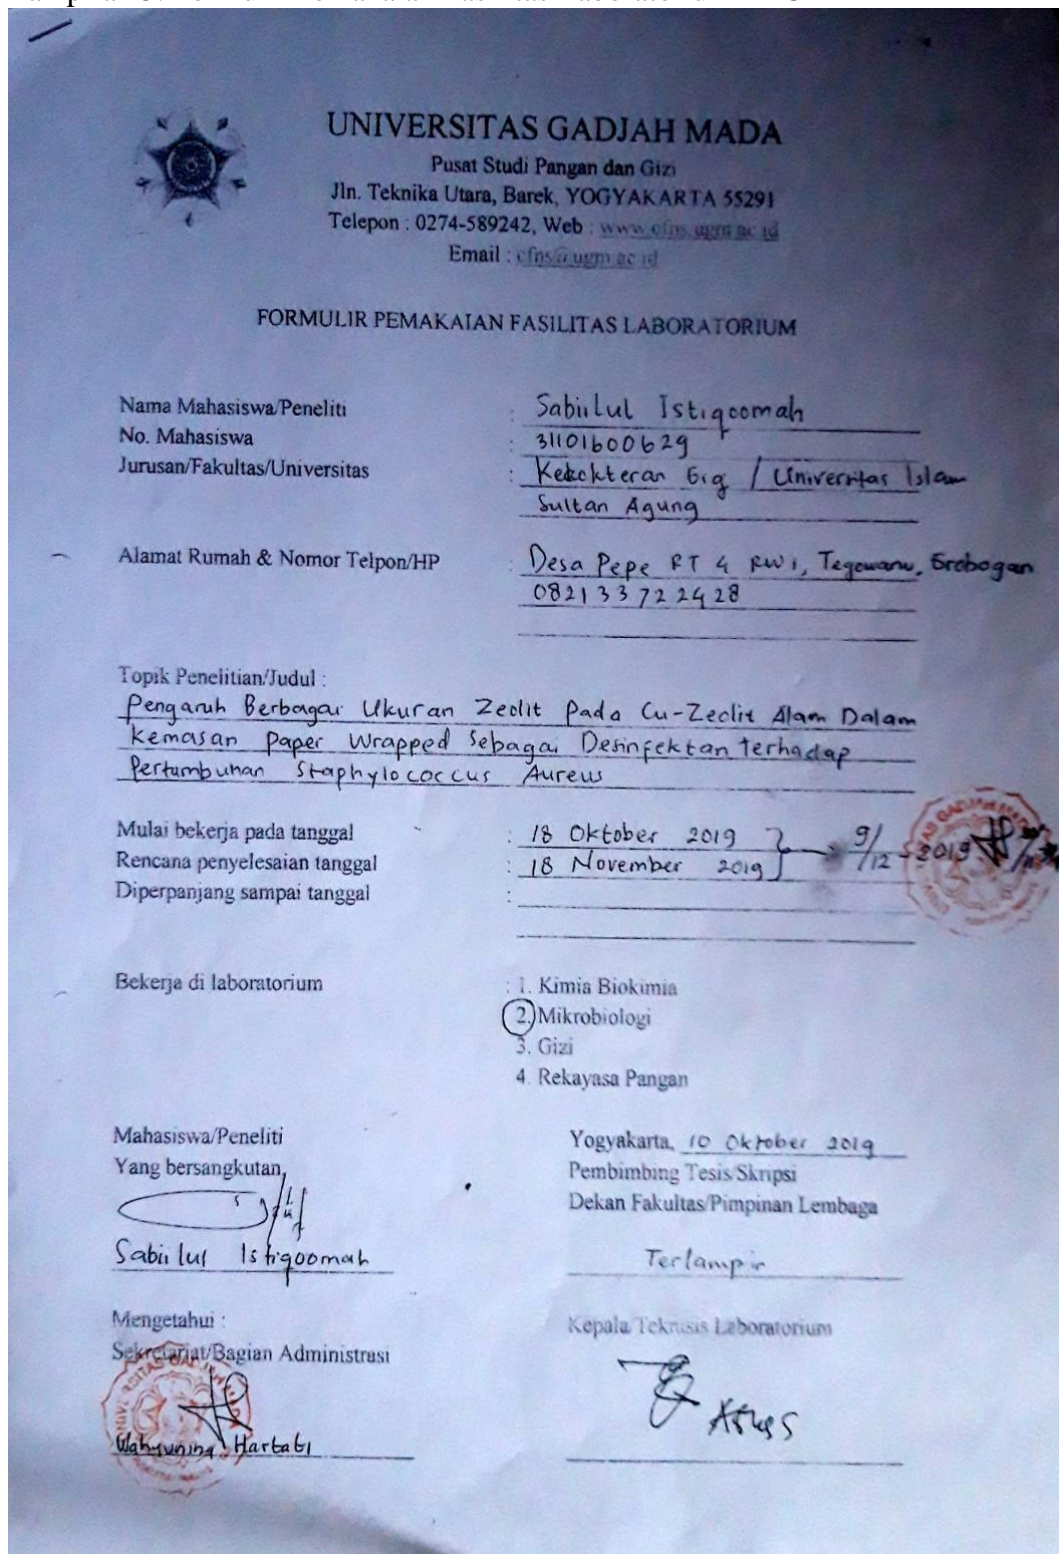 UNIVERSITAS GADJAH MADA
Pusat Studi Pangan dan Gizi
Jln. Teknika Utara, Barek, YOGYAKARTA 55291
Telepon : 0274-589242, Web : www.cfns.ugm.ac.id
Email : cfns@ugm.ac.id
FORMULIR PEMAKAIAN FASILITAS LABORATORIUM
Nama Mahasiswa/Peneliti : Sabiilul Istiqoomah
No. Mahasiswa : 31101600629
Jurusan/Fakultas/Universitas : Kedokteran Gigi / Universitas Islam
Sultan Agung
Alamat Rumah & Nomor Telpon/HP : Desa Pepe RT 4 RW 1, Tegowanu, Grobogan
082133722428
Topik Penelitian/Judul :
Pengaruh Berbagai Ukuran Zeolit Pada Cu-Zeolit Alam Dalam
Kemasan Paper Wrapped Sebagai Desinfektan terhadap
Pertumbuhan Staphylococcus Aureus
Mulai bekerja pada tanggal : 18 Oktober 2019
9/12 - 2019
Rencana penyelesaian tanggal : 18 November 2019
Diperpanjang sampai tanggal :
Bekerja di laboratorium : 1. Kimia Biokimia
2. Mikrobiologi
3. Gizi
4. Rekayasa Pangan
Mahasiswa/Peneliti
Yang bersangkutan,
Sabiilul Istiqoomah
Yogyakarta, 10 Oktober 2019
Pembimbing Tesis/Skripsi
Dekan Fakultas/Pimpinan Lembaga
Terlampir
Mengetahui :
Sekretariat/Bagian Administrasi
Wahyuning Hartati
Kepala/Teknisis Laboratorium